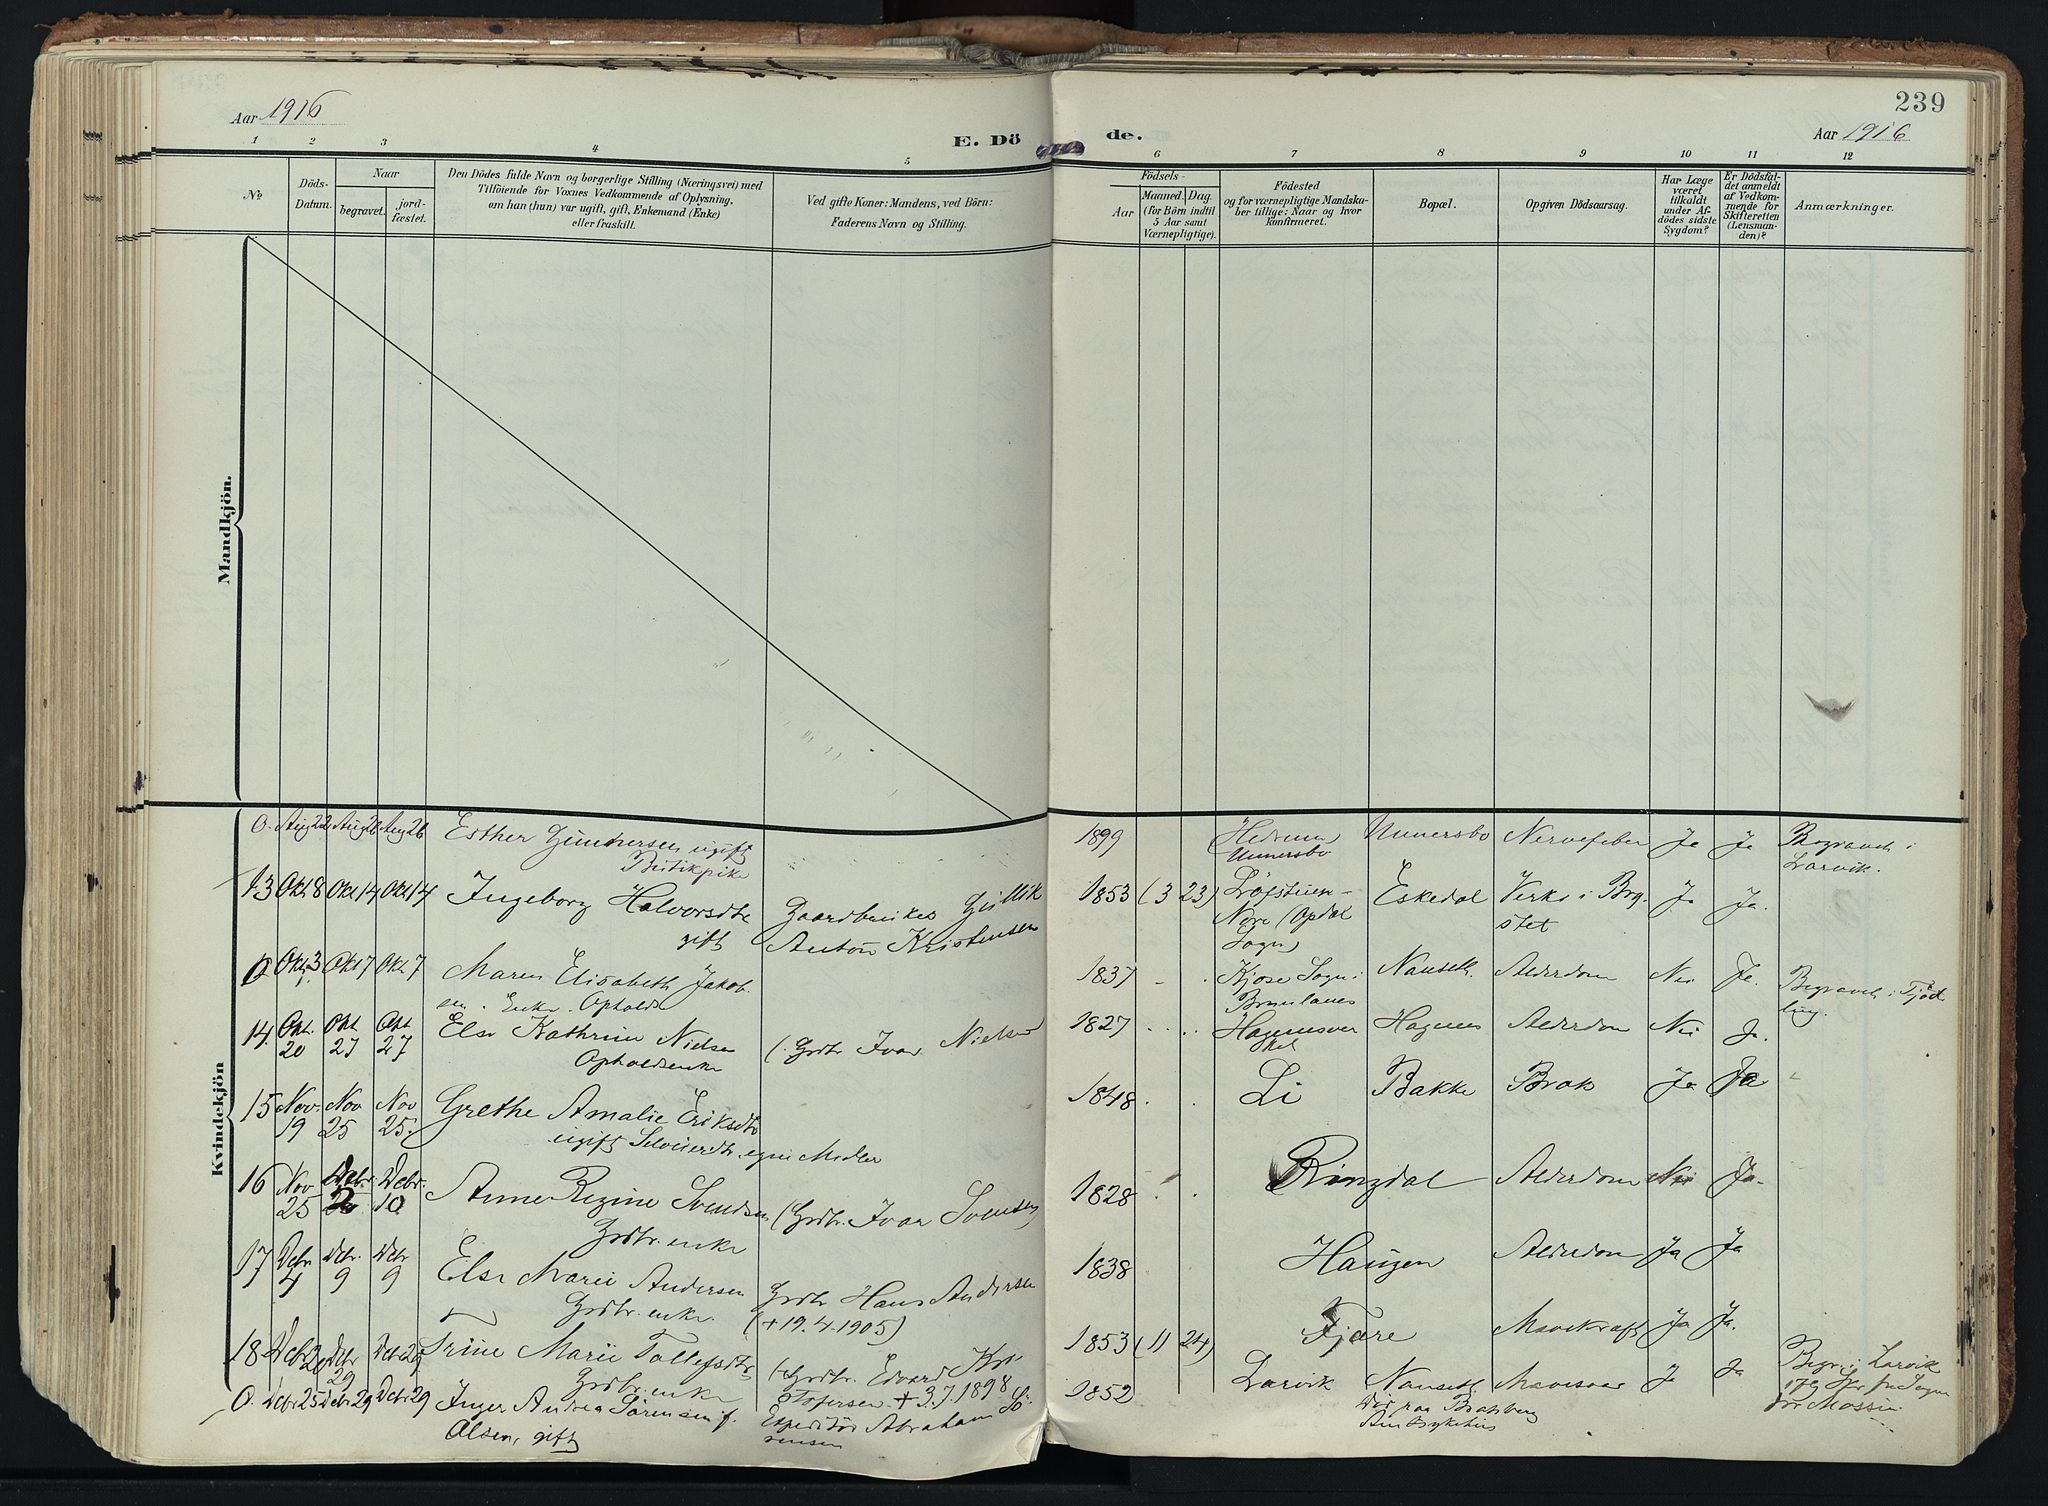 Aar 1916
E. Dö de.
239
Aar 1916
1 2 3 4 5 6 7 8 9 10 11 12
No.
Döds-
Datum.
Naar
begravet.
jord-
fæstet.
Den Dödes fulde Navn og borgerlige Stilling (Næringsvei) med
Tilföiende for Voxnes Vedkommende af Oplysning,
om han (hun) var ugift, gift, Enkemand (Enke)
eller fraskilt.
Ved gifte Koner: Mandens, ved Börn:
Faderens Navn og Stilling.
Födsels-
Aar
Maaned. Dag.
(for Börn indtil
5 Aar samt
Værnepligtige).
Födested
og for værnepligtige Mandska-
ber tillige: Naar og hvor
konfirmeret.
Bopæl.
Opgiven Dödsaarsag.
Har Læge
været
tilkaldt
under Af-
dödes sidste
Sygdom?
Er Dödsfal-
det anmeldt
af Vedkom-
mende for
Skifteretten
(Lensman-
den)?
Anmærkninger.
Mandkjön.
Kvindekjön
0. Aug 22 Aug 26 Aug 26 Esther Gundersen ugift 1899 Hedrum Unnersbo Nervefeber Ja Ja Begravet i
Butikpike Unnersbo Larvik.
13 Okt 8 Okt 14 Okt 14 Ingeborg Halvorsdtr Gaardbruker Gullik 1853 (3 23) Eskedal Verk i Bry- Ja Ja.
gift Anton Kristensen Nore (Opdal stet
Sogn)
0 Okt 3 Okt 7 Okt 7 Maren Elisabeth Jakob- 1837 - . Kjose Sogn i Nanseth Alderdom Nei Ja. Begravet i Tjöd-
sen. Enke. Opholds Brunlanes ling.
14. Okt. 20 Okt 27 Okt 27 Else Kathrine Nielsen (Grdbr Ivar Nielsen 1827 . . . . Hagenes Alderdom Nei Ja.
Opholdsenke
15 Nov. 19 Nov 25 Nov 25. Grethe Amalie Eriksdtr 1848 . . Li Bakke Brok Ja Ja
ugift Selveierdtr. egne Midler
16 Nov 25 Debr. 2 Debr. 10 Anne Regine Svendsen (Grdbr. Ivar Svensen) 1828 . . Ringdal Alderdom Nei Ja.
Grdbr. enke
17 Debr 4 Debr. 9 Debr 9 Else Marie Andersen Grdbr Hans Andersen 1838 Haugen Alderdom Ja Ja
Grdbr. enke. (+ 19.4.1905)
18 Debr 20 Debr 29 Debr 29 Trine Marie Tollefsdtr (Grdbr. Edvard Kri 1853 (11 24) Fjære Mavekræft Ja Ja.
Grdbr. enke stofersen + 3.7.1898
0. Debr 25 Debr 29 Debr 29 Inger Andrea Sörensen f. Expeditör Abraham Sö- 1852 Larvik Nanseth Mavesaar Ja Ja Begr. i Larvik
Olsen, gift rensen Död paa Bratsberg
Amtssykehus